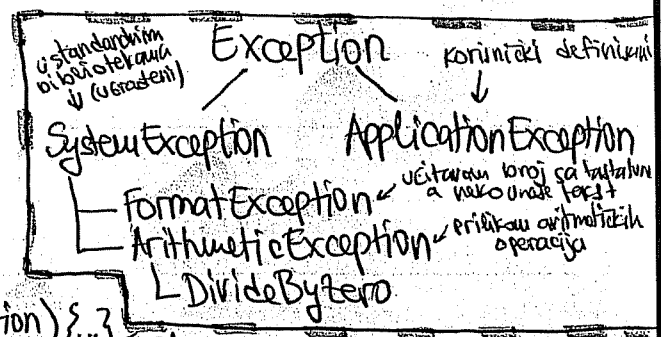 u standardnim
bibliotekama
(ugrađeni)
Exception
korisnički definisani
SystemException
ApplicationException
FormatException
učitavam broj sa tastature
a neko unese tekst
ArithmeticException
prilikom aritmetičkih
operacija
DivideByZero
ion) {...}